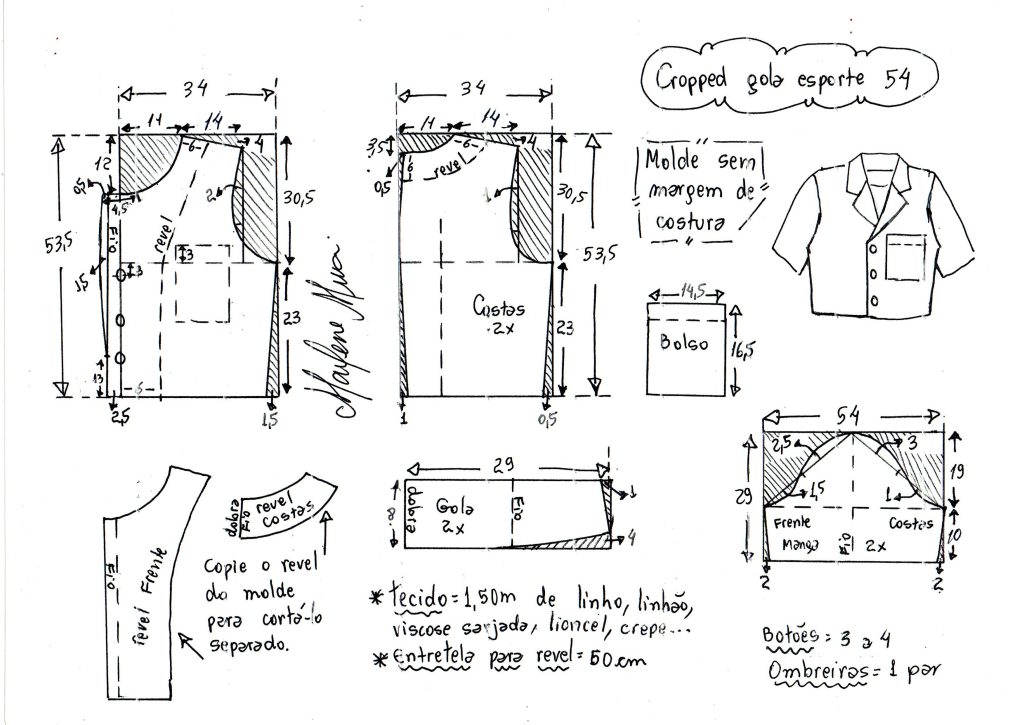 Cropped gola esporte 54
34
11
14
4
6
12
0,5
4,5
2
30,5
53,5
Fio
revel
3
3
1,5
23
13
6
2,5
1,5
Marlene Mukai
34
11
14
4
3,5
6
6
0,5
revel
1
30,5
53,5
Costas
2x
23
1
0,5
Molde sem
margem de
costura
14,5
Bolso
16,5
54
2,5
3
29
1,5
1
19
Frente
Costas
Manga
Fio
2x
10
2
2
Fio
revel Frente
dobra
Fio
revel
costas
Copie o revel
do molde
para cortá-lo
separado.
29
8
dobra
Gola
2x
Fio
1
4
* Tecido = 1,50m de linho, linhão,
viscose sarjada, liocel, crepe...
* Entretela para revel = 50cm
Botões = 3 a 4
Ombreiras = 1 par